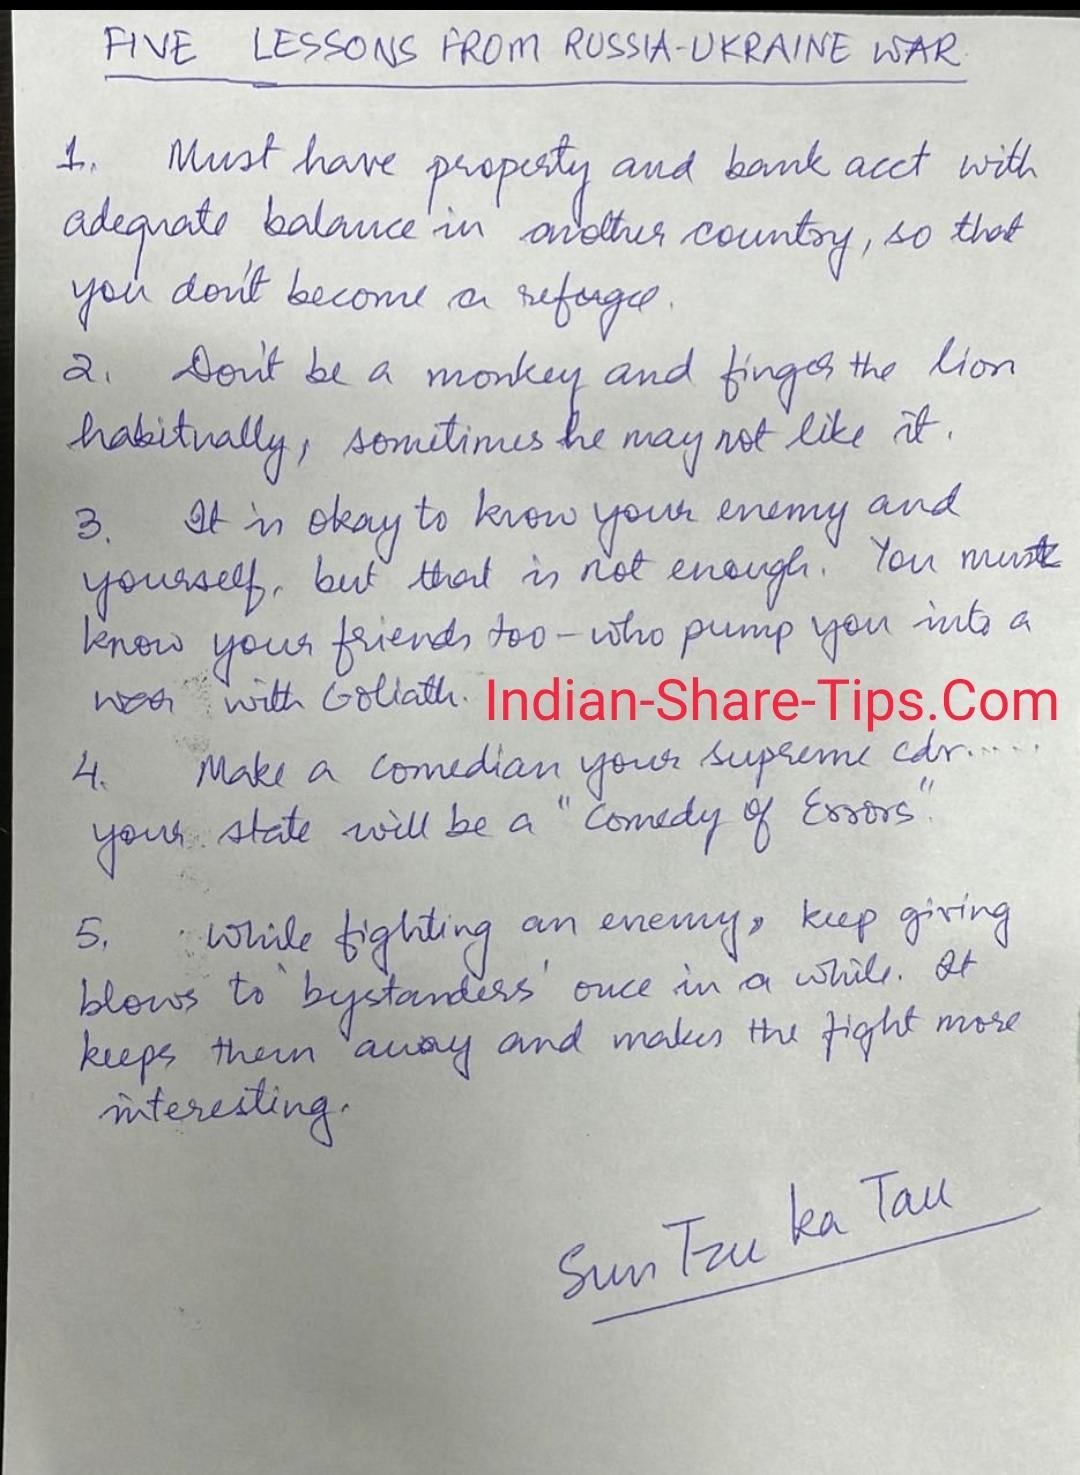 FIVE LESSONS FROM RUSSIA-UKRAINE WAR
1. Must have property and bank acct with
adequate balance in another country, so that
you don't become a refugee.
2. Don't be a monkey and finger the lion
habitually, sometimes he may not like it.
3. It is okay to know your enemy and
yourself, but that is not enough. You must
know your friends too - who pump you into a
war with Goliath. Indian-Share-Tips.Com
4. Make a comedian your supreme cdr.....
your state will be a "Comedy of Errors".
5. While fighting an enemy, keep giving
blows to 'bystanders' once in a while. It
keeps them away and makes the fight more
interesting.
Sun Tzu ka Tau